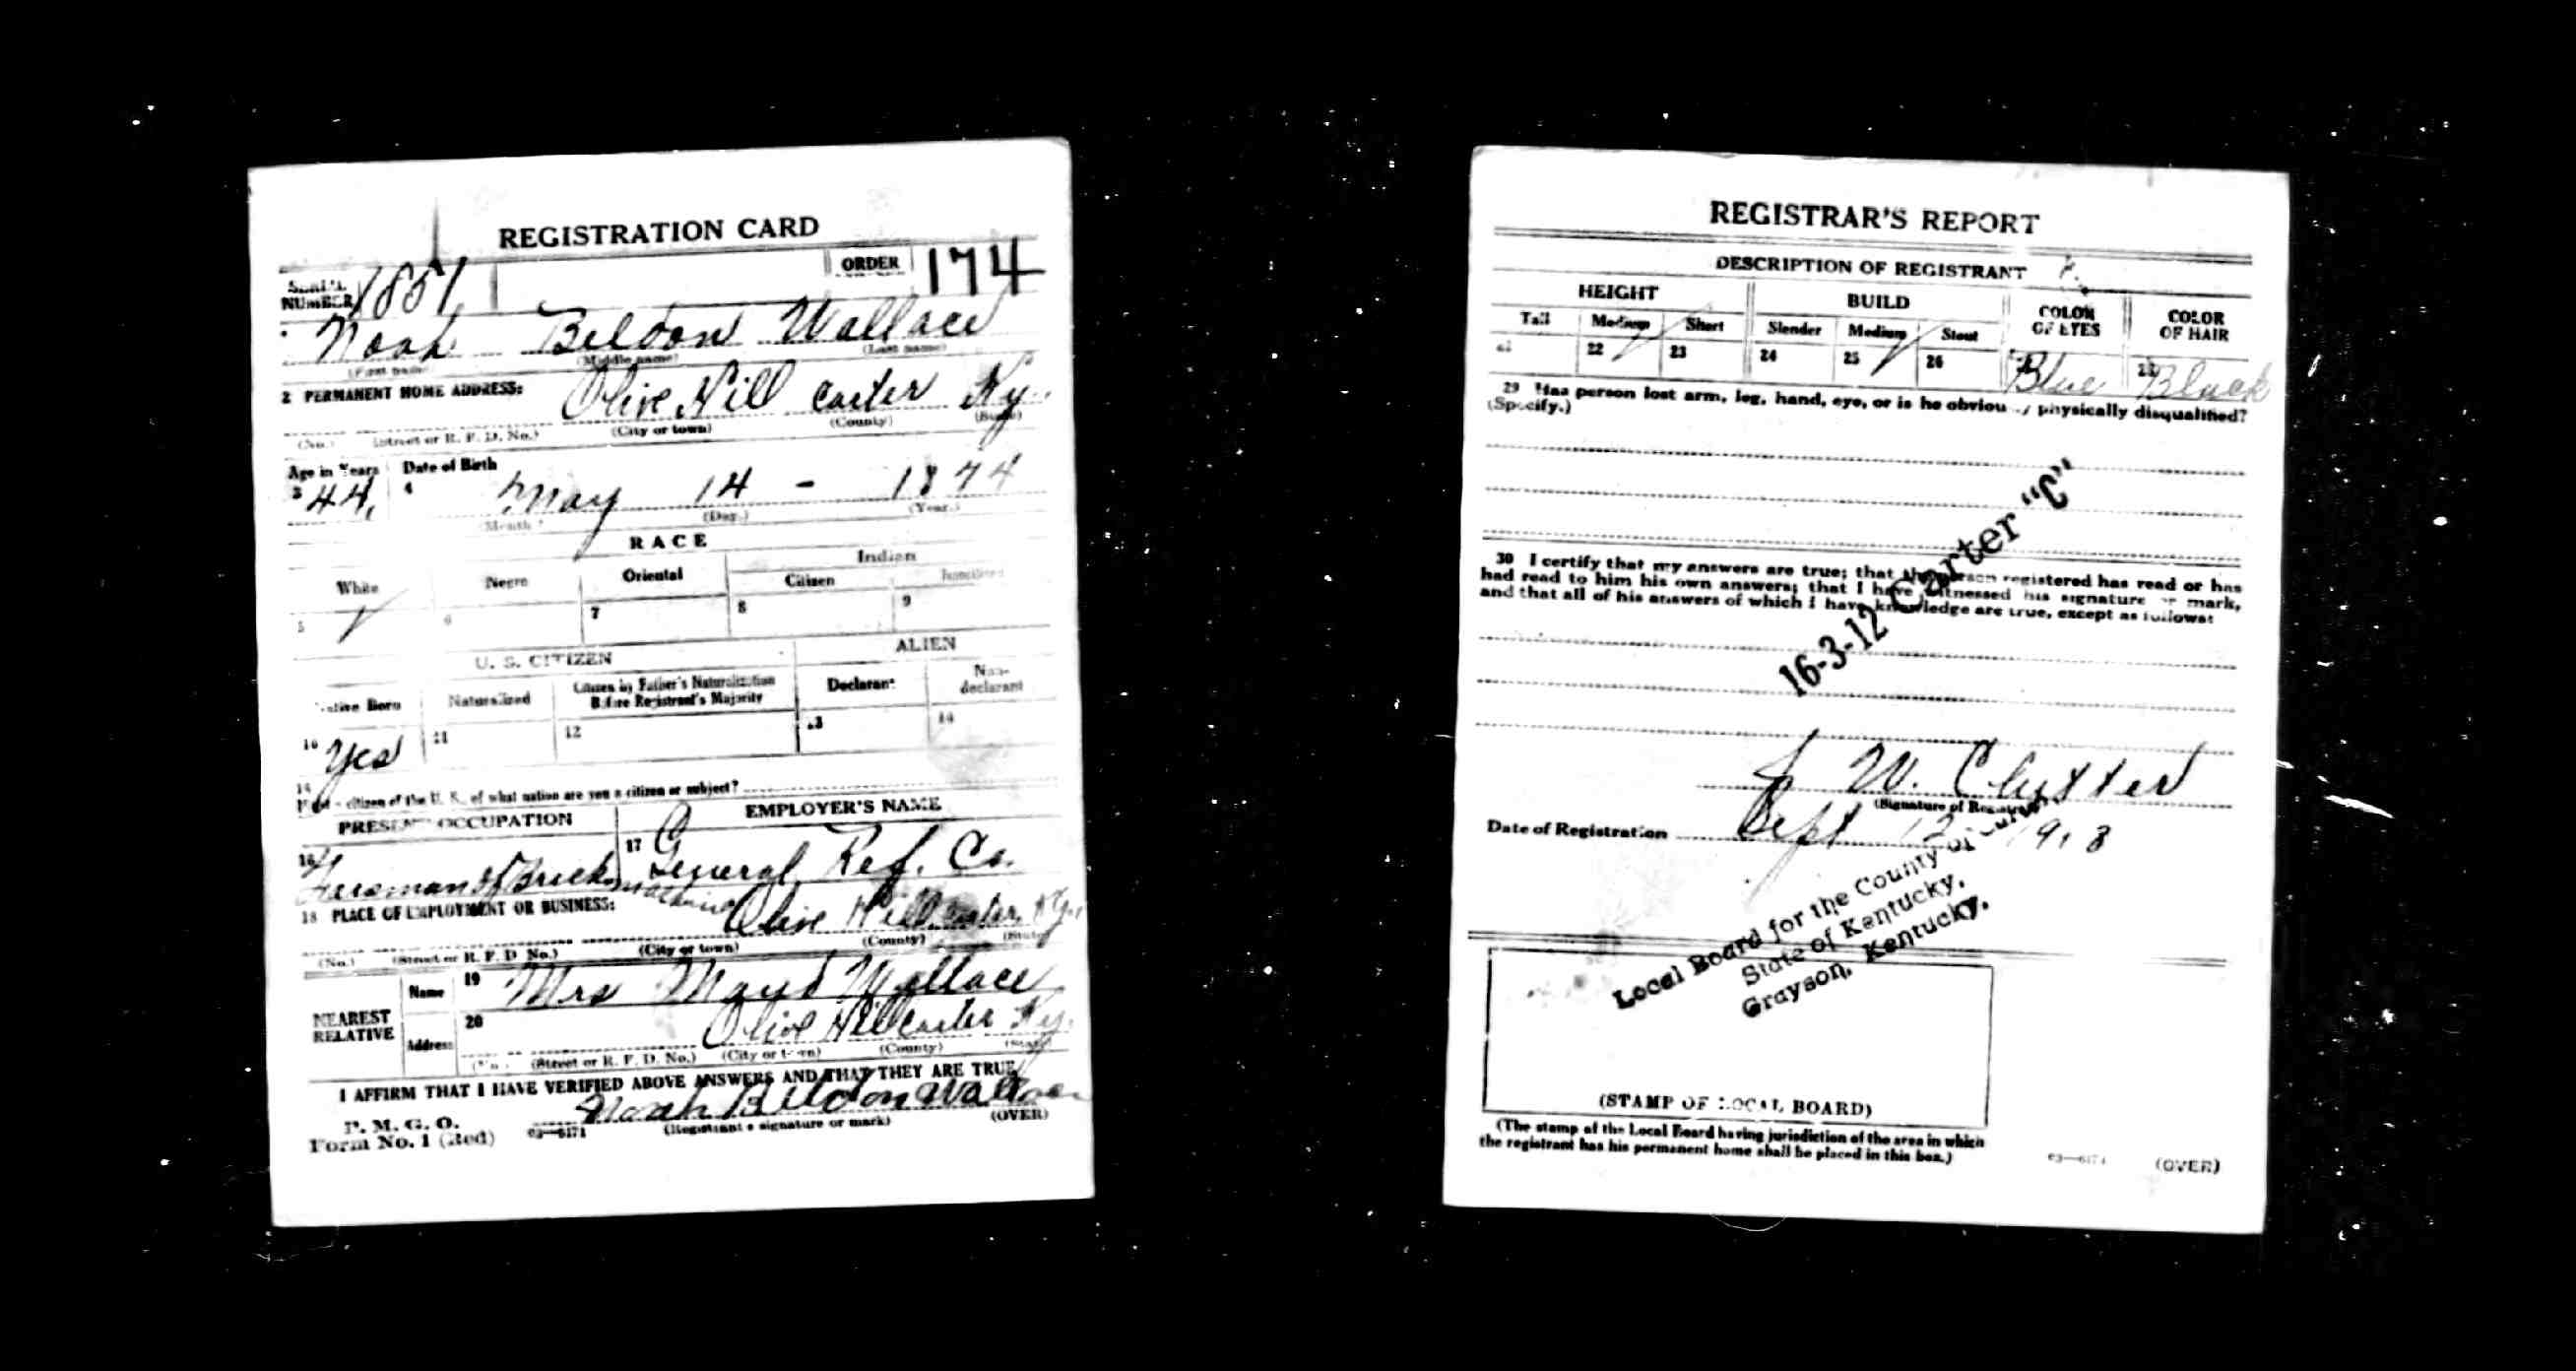 REGISTRATION CARD
SERIAL NUMBER 1851 ORDER 174
Noah Beldon Wallace
(First name) (Middle name) (Last name)
2 PERMANENT HOME ADDRESS: Olive Hill Carter Ky.
(No.) (Street or R. F. D. No.) (City or town) (County) (State)
Age in Years Date of Birth
3 44. 4 May 14 - 1874
(Month) (Day.) (Year.)
RACE
White Negro Oriental Indian
Citizen
5 6 7 8 9
U. S. CITIZEN ALIEN
Native Born Naturalized Citizen by Father's Naturalization Before Registrant's Majority Declarant Non-declarant
10 Yes 11 12 13 14
15
If not a citizen of the U. S., of what nation are you a citizen or subject?
PRESENT OCCUPATION EMPLOYER'S NAME
16 of Brick machine 17 General Ref. Co.
18 PLACE OF EMPLOYMENT OR BUSINESS: Olive Hill Carter Ky.
(No.) (Street or R. F. D. No.) (City or town) (County) (State)
NEAREST RELATIVE
Name 19 Mrs Maud Wallace
Address 20 Olive Hill Carter Ky.
(No.) (Street or R. F. D. No.) (City or town) (County) (State)
I AFFIRM THAT I HAVE VERIFIED ABOVE ANSWERS AND THAT THEY ARE TRUE
Noah Beldon Wallace
P. M. G. O.
Form No. 1 (Red) 03—6171 (Registrant's signature or mark) (OVER)
REGISTRAR'S REPORT
DESCRIPTION OF REGISTRANT
HEIGHT BUILD COLOR OF EYES COLOR OF HAIR
Tall Medium Short Slender Medium Stout
21 22 23 24 25 26 Blue Black
29 Has person lost arm, leg, hand, eye, or is he obviously physically disqualified?
(Specify.)
30 I certify that my answers are true; that the person registered has read or has
had read to him his own answers; that I have witnessed his signature or mark,
and that all of his answers of which I have knowledge are true, except as follows:
16-3-12 Carter "C"
W. Clutter
(Signature of Registrar)
Date of Registration Sept 12 1918
Local Board for the County of Carter
State of Kentucky,
Grayson, Kentucky.
(STAMP OF LOCAL BOARD)
(The stamp of the Local Board having jurisdiction of the area in which
the registrant has his permanent home shall be placed in this box.)
03—6171 (OVER)